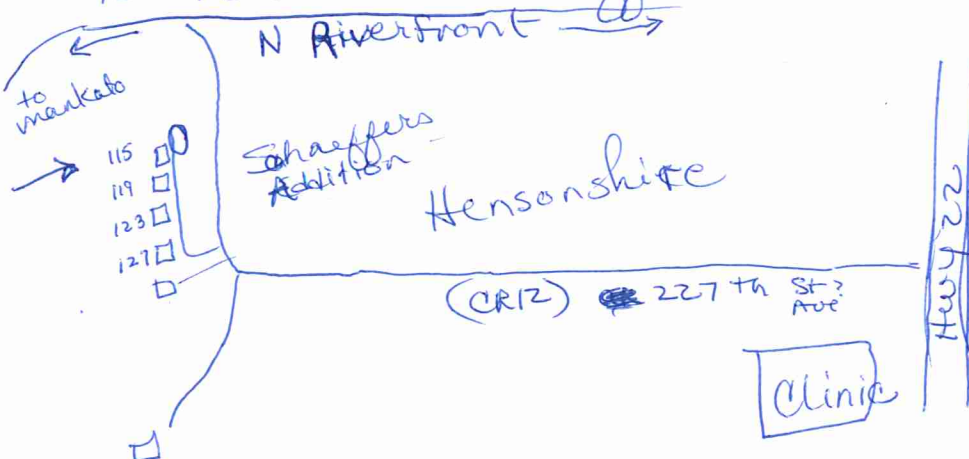 N Riverfront
to
mankato
115
119
123
127
Schaeffers
Addition
Hensonshire
(CR12) 227th St?
Ave
Hwy 22
Clinic